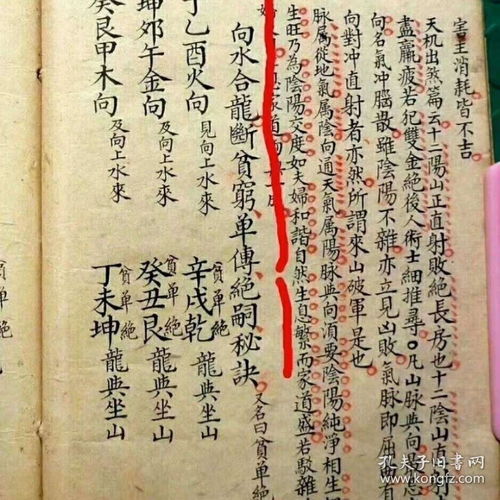 害主消耗皆不吉
天机出煞篇云十二陽山正直射敗絕長房也十二陰山直射
盡羸疲若犯雙金絕後人術士細推尋凡山脉與向最忌
向名氣冲腦散雖陰陽不雜亦立見凶敗氣脉即屈曲有
向對冲直射者亦然所謂來山破軍是也
脉属從地氣属陰向通天氣属陽脉與向湏要陰陽純淨相生
生旺乃為陰陽交度如夫婦和諧自然生息繁而家道盛若駁雜
息家道
向水合龍斷貧窮單傳絕嗣秘訣又名曰貧單絕
丁乙酉火向見向上水來貧單絕辛戌乾龍與坐山
坤郊午金向及向上水來貧單絕癸丑艮龍與坐山
癸艮甲木向及向上水來貧單絕丁未坤龍與坐山
孔夫子旧书网
www.kongfz.com